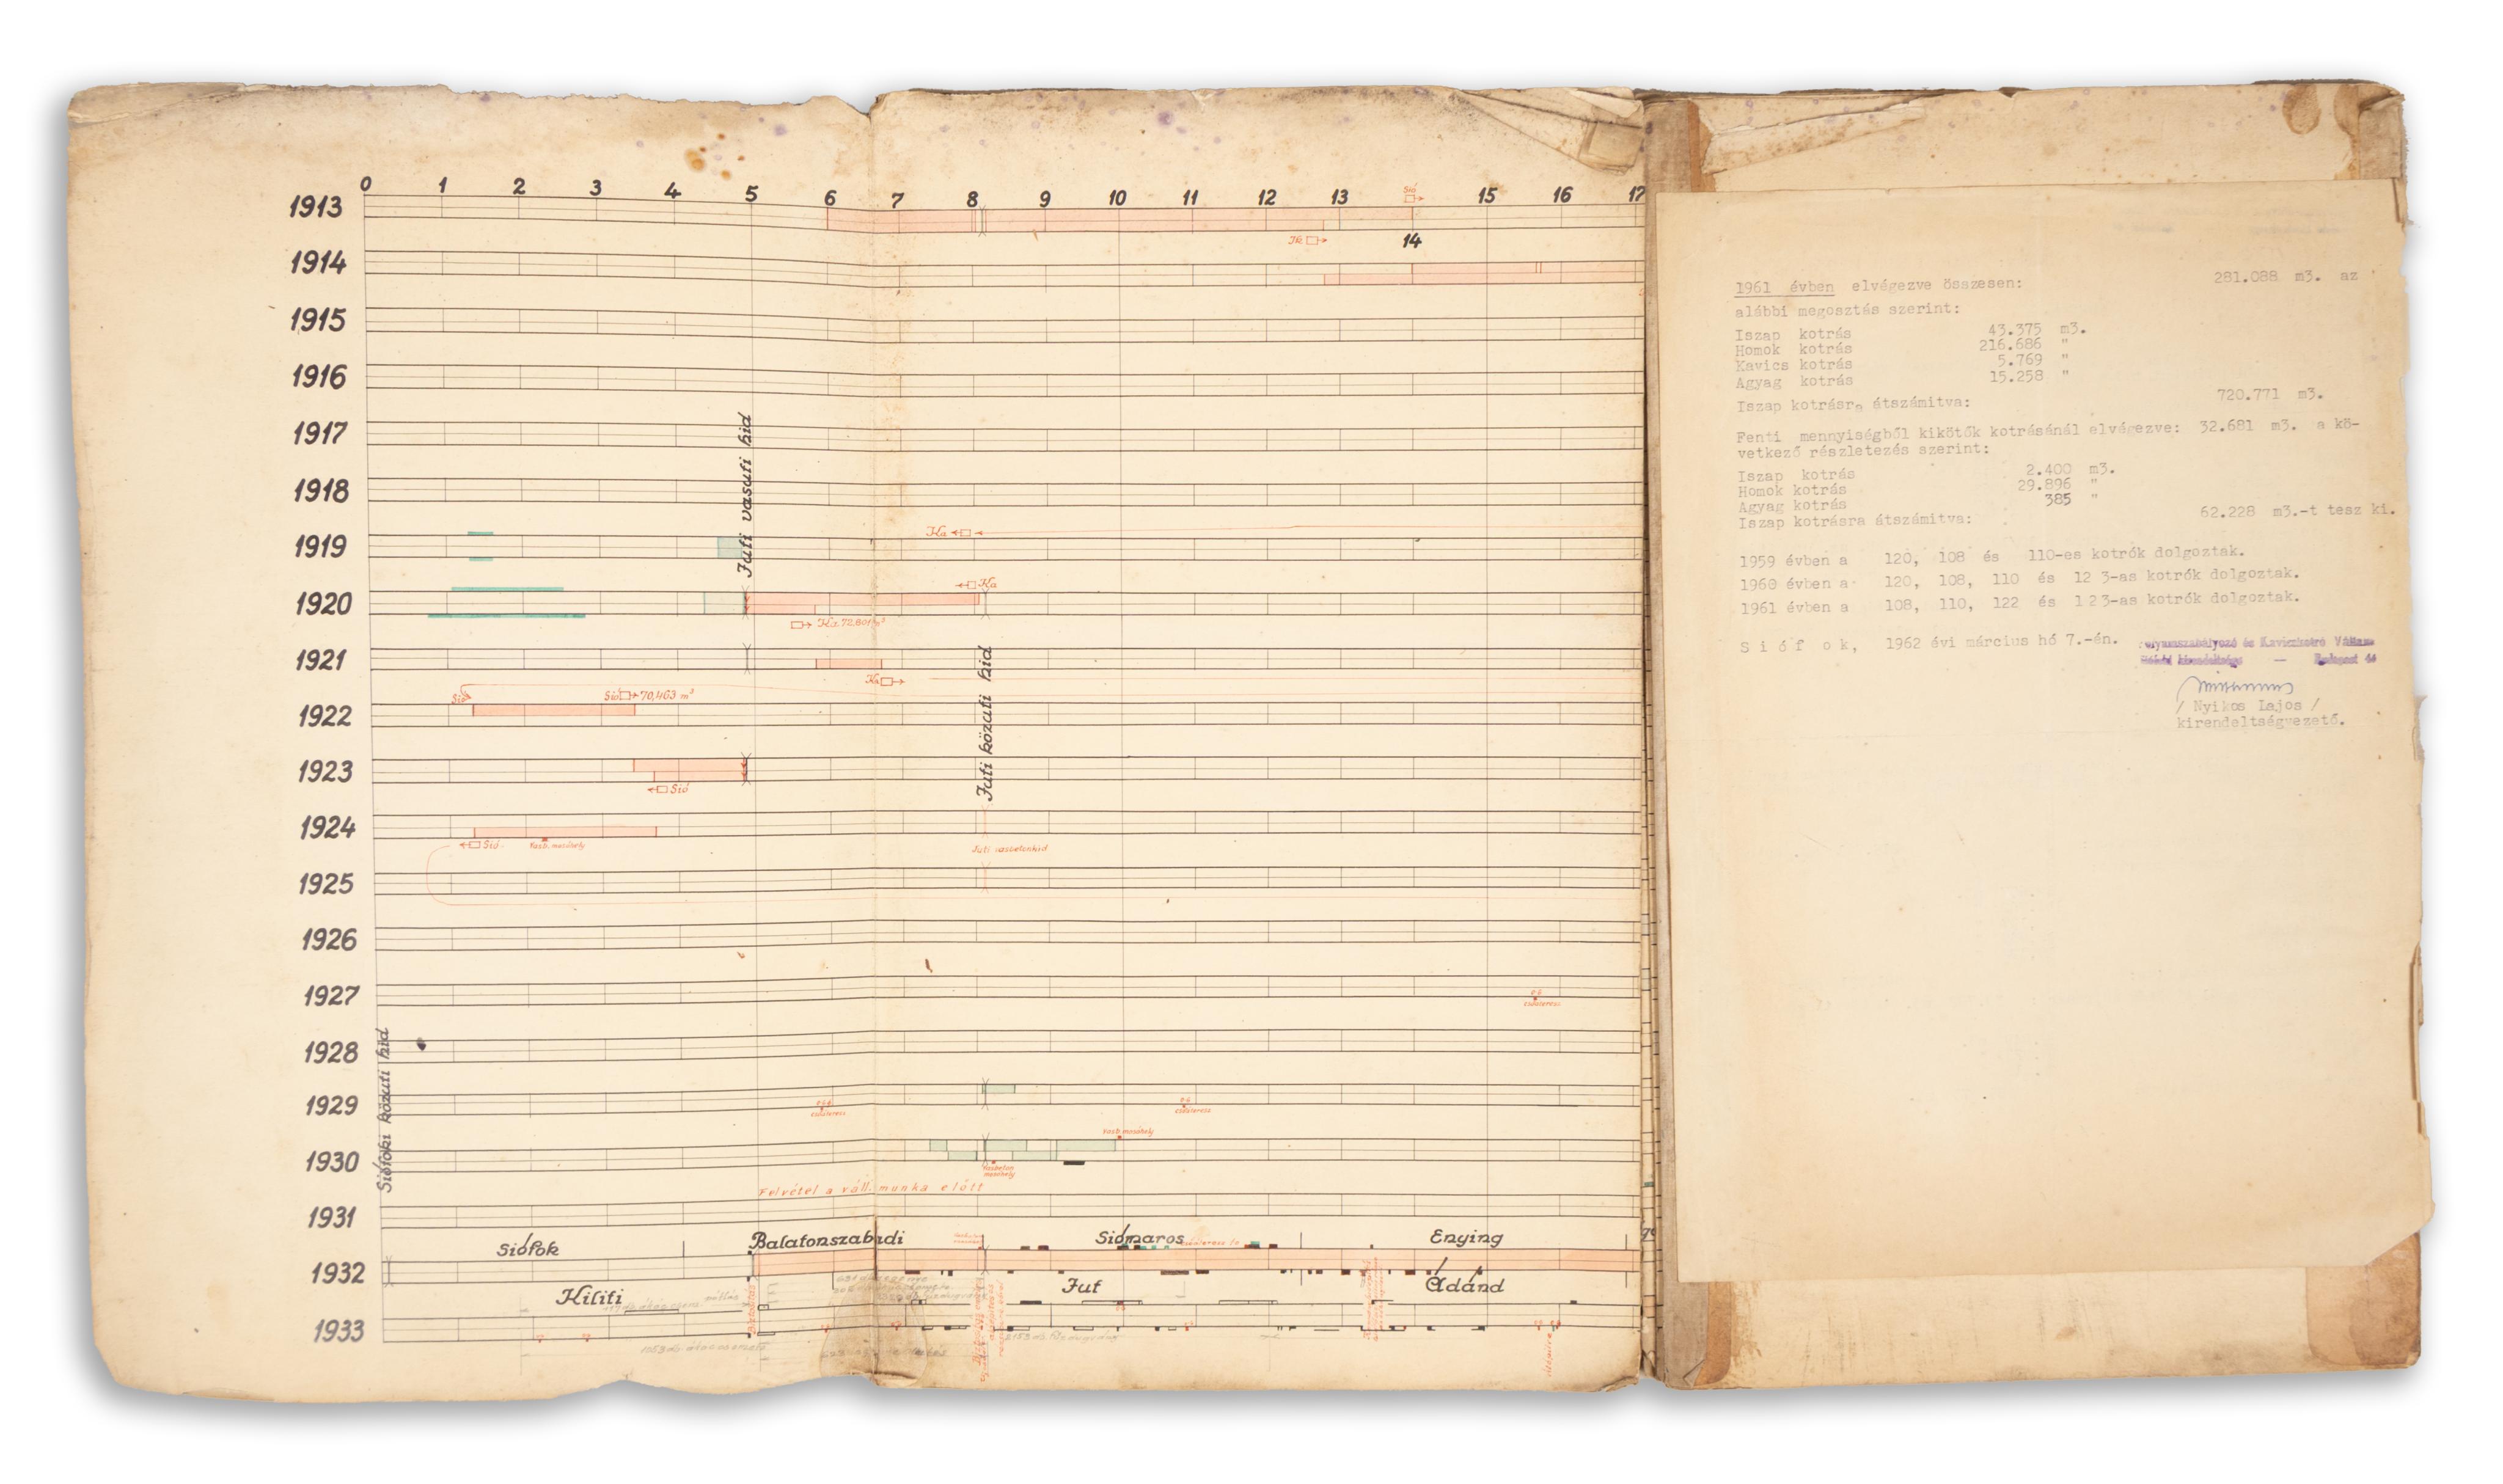 0 1 2 3 4 5 6 7 8 9 10 11 12 13 15 16 17
Sió
1913
Ik
14
1914
1915
1916
1917
1918
Juti vasuti hid
Ka
1919
Ka
1920
Ka. 72.801 m³
1921
Ka
Juti közuti hid
Sió
Sió 70,463 m³
1922
1923
Sió
1924
Sió
Vasb. mosóhely
Juti vasbetonhid
1925
1926
1927
csőáteresz
1928
Siófoki közuti hid
1929
csőáteresz
csőáteresz
Vasb. mosóhely
1930
Vasbeton
mosóhely
Felvétel a váll. munka előtt
1931
Siófok Balatonszabadi Siómaros Enying
1932
Kiliti Jut Ádánd
1933
1961 évben elvégezve összesen: 281.088 m3. az
alábbi megosztás szerint:
Iszap kotrás 43.375 m3.
Homok kotrás 216.686 "
Kavics kotrás 5.769 "
Agyag kotrás 15.258 "
Iszap kotrásra átszámitva: 720.771 m3.
Fenti mennyiségből kikötők kotrásánál elvégezve: 32.681 m3. a kö-
vetkező részletezés szerint:
Iszap kotrás 2.400 m3.
Homok kotrás 29.896 "
Agyag kotrás 385 "
Iszap kotrásra átszámitva: 62.228 m3.-t tesz ki.
1959 évben a 120, 108 és 110-es kotrók dolgoztak.
1960 évben a 120, 108, 110 és 12 3-as kotrók dolgoztak.
1961 évben a 108, 110, 122 és 123-as kotrók dolgoztak.
S i ó f o k, 1962 évi március hó 7.-én.
/ Nyikos Lajos /
kirendeltségvezető.